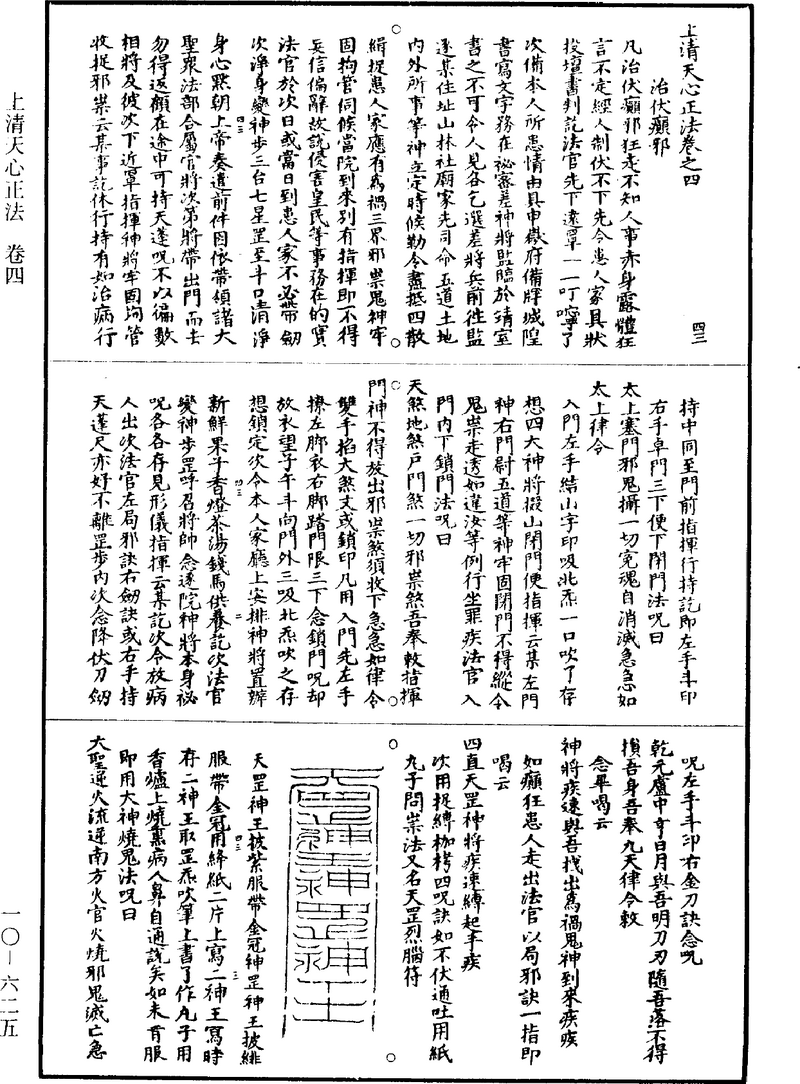 上清天心正法 卷四
一〇—六二五
上清天心正法卷之四
四三
治伏癲邪
凡治伏癲邪狂走不知人事赤身露體狂
言不定經人制伏不下先令患人家具狀
投壇書判訖法官先下遠罩一一叮嚀了
次備本人所患情由具申嶽府備牒城隍
書寫文字務在祕密差神將監臨於靖室
書之不可令人見各乞選差將兵前往監
逐某住址山林社廟家先司命五道土地
內外所事等神立定時候勒令盡抵四散
緝捉患人家應有為禍三界邪祟鬼神牢
固拘管伺候當院到來別有指揮即不得
妄信偏辭故說侵害皇民等事務在的實
法官於次日或當日到患人家不必帶劒
次淨身變神步三台七星罡至斗口清淨
身心默朝上帝奏遣前件因依帶領諸大
聖眾法部合屬官將次第將帶出門而去
勿得返顧在途中可持天蓬呪不以徧數
相將及彼次下近罩指揮神將牢固拘管
收捉邪祟云某事訖休行持有如治病行
持中同至門前指揮行持訖即左手斗印
右手卓門三下便下閉門法呪曰
太上塞門邪鬼攝一切冤魂自消滅急急如
太上律令
入門左手結山字印吸北炁一口吹了存
想四大神將掇山閉門便指揮云某左門
神右門尉五道等神牢固閉門不得縱令
鬼祟走透如違汝等例行坐罪疾法官入
門內下鎖門法呪曰
天煞地煞戶門煞一切邪祟煞吾奉敕指揮
門神不得放出邪祟煞須收下急急如律令
雙手掐大煞文或鎖印凡用入門先左手
撩左脚衣右脚踏門限三下念鎖門呪却
放衣望子午斗向門外三吸北炁吹之存
想鎖定次令本人家廳上安排神將置辦
新鮮果子香燈茶湯錢馬供養訖次法官
變神步罡呼召將帥念逐院神將本身祕
呪各各存見形儀指揮云某訖次令放病
人出次法官左局邪訣右劒訣或右手持
天蓬尺亦好不離罡步內次念降伏刀劒
呪左手斗印右金刀訣念呪
乾元廬中亨日月與吾明刀刃隨吾落不得
損吾身吾奉九天律令敕
念畢喝云
神將疾速與吾找出為禍鬼神到來疾疾
如癲狂患人走出法官以局邪訣一指即
喝云
四直天罡神將疾速縛起手疾
次用捉縛枷栲四呪訣如不伏通吐用紙
九子問祟法又名天罡烈腦符
天罡神王披紫服帶金冠神罡神王披緋
服帶金冠用綿紙二片上寫二神王寫時
存二神王取罡炁吹筆上書了作丸子用
香爐上燒熏病人鼻自通說矣如未肯服
即用大神燒鬼法呪曰
大聖遞火流遞南方火官火燒邪鬼滅亡急